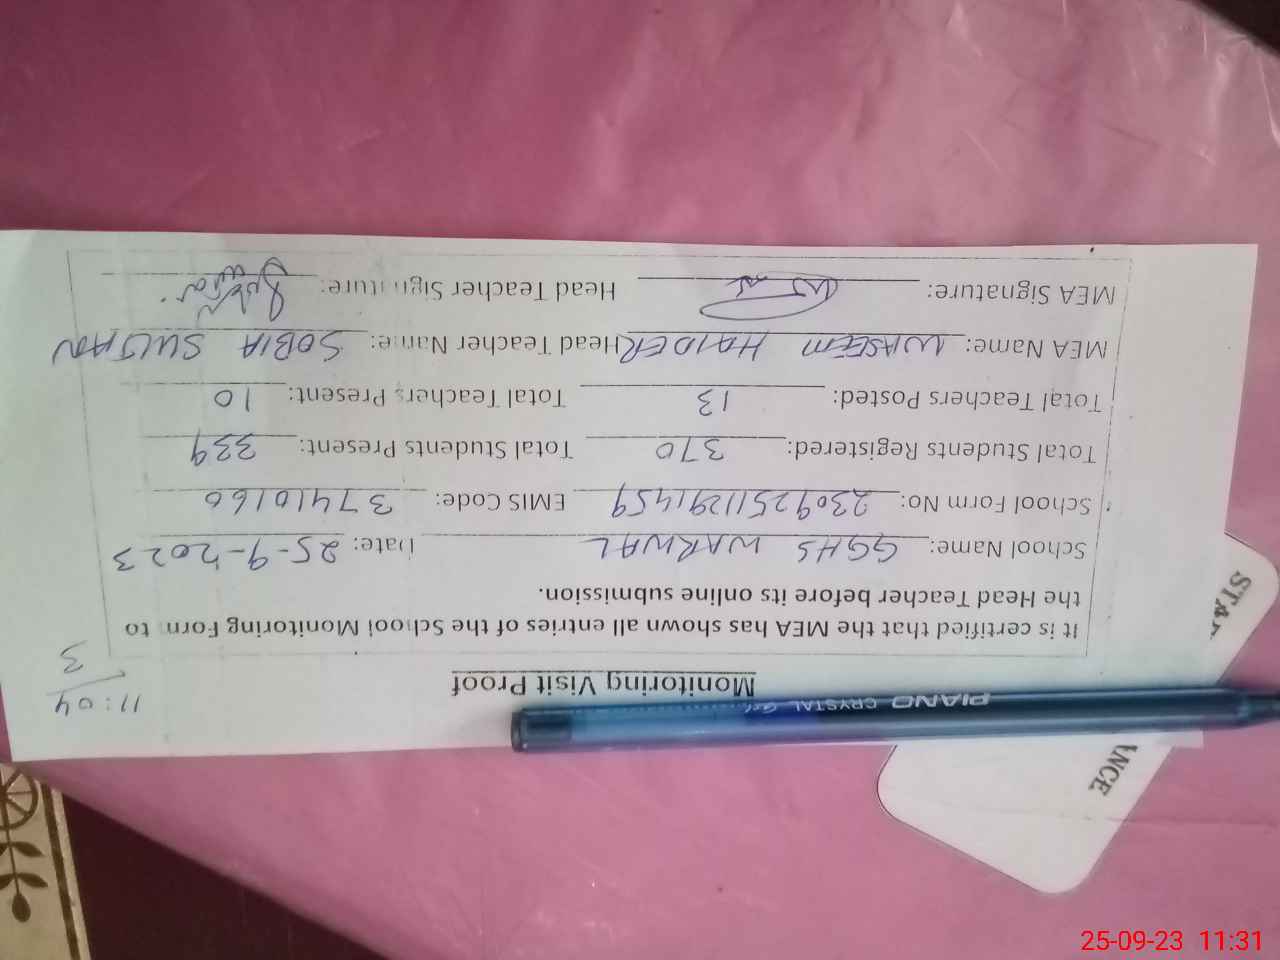 PIANO CRYSTAL Gel
Monitoring Visit Proof
11:04
3
It is certified that the MEA has shown all entries of the School Monitoring Form to
the Head Teacher before its online submission.
School Name: GGHS WARWAL Date: 25-9-2023
School Form No: 230925112911459 EMIS Code: 37410160
Total Students Registered: 370 Total Students Present: 339
Total Teachers Posted: 13 Total Teachers Present: 10
MEA Name: WASEEM HAIDER Head Teacher Name: SOBIA SULTAN
MEA Signature: Head Teacher Signature:
25-09-23 11:31